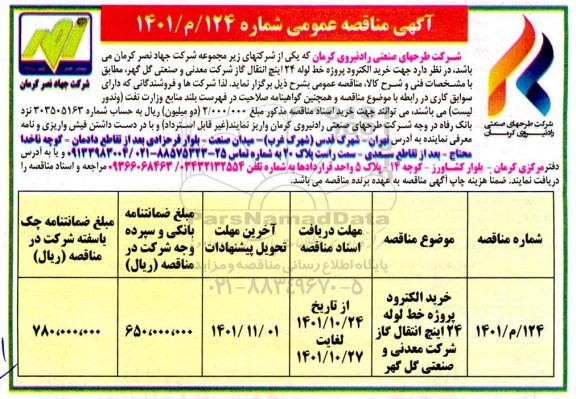 آگهی مناقصه عمومی شماره ۱۲۴/م/۱۴۰۱
شرکت جهاد نصر کرمان
شرکت طرحهای صنعتی
رادنیروی کرمان
شرکت طرحهای صنعتی رادنیروی کرمان که یکی از شرکتهای زیر مجموعه شرکت جهاد نصر کرمان می
باشد، در نظر دارد جهت خرید الکترود پروژه خط لوله ۲۴ اینچ انتقال گاز شرکت معدنی و صنعتی گل گهر، مطابق
با مشخصات فنی و شرح کالا، مناقصه عمومی بشرح ذیل برگزار نماید. لذا شرکت ها و فروشندگانی که دارای
سوابق کاری در رابطه با موضوع مناقصه و همچنین گواهینامه صلاحیت در فهرست بلند منابع وزارت نفت (وندور
لیست) می باشند، می توانند جهت خرید اسناد مناقصه مذکور مبلغ ۲/۰۰۰/۰۰۰ (دو میلیون) ریال به حساب شماره ۳۰۳۵۰۵۱۶۳ نزد
بانک رفاه در وجه شرکت طرحهای صنعتی رادنیروی کرمان واریز نمایند(غیر قابل استرداد) و با در دست داشتن فیش واریزی و نامه
معرفی نماینده به آدرس تهران - شهرک قدس (شهرک غرب) - میدان صنعت - بلوار فرحزادی بعد از تقاطع دادمان - کوچه ناخدا
محتاج - بعد از تقاطع سعیدی - سمت راست پلاک ۲۰ به شماره تماس ۲۵-۸۸۵۷۵۳۳۳-۰۲۱ /۰۹۱۳۳۹۸۳۰۰۴ و یا به آدرس
دفترمرکزی کرمان - بلوار کشاورز - کوچه ۱۴ - پلاک ۵ واحد قراردادها به شماره تلفن ۰۳۴۳۲۱۳۲۵۵۴ /۰۹۳۶۶۰۶۸۴۶۳ مراجعه و اسناد مناقصه را
دریافت نمایند. ضمنا هزینه چاپ آگهی مناقصه به عهده برنده مناقصه می باشد.
شماره مناقصه
موضوع مناقصه
مهلت دریافت
اسناد مناقصه
آخرین مهلت
تحویل پیشنهادات
مبلغ ضمانتنامه
بانکی و سپرده
وجه شرکت در
مناقصه (ریال)
مبلغ ضمانتنامه چک
یاسفته شرکت در
مناقصه (ریال)
۱۲۴/م/۱۴۰۱
خرید الکترود
پروژه خط لوله
۲۴ اینچ انتقال گاز
شرکت معدنی و
صنعتی گل گهر
از تاریخ
۱۴۰۱/۱۰/۲۴
لغایت
۱۴۰۱/۱۰/۲۷
۱۴۰۱/۱۱/۰۱
۶۵۰,۰۰۰,۰۰۰
۷۸۰,۰۰۰,۰۰۰
ParsNamadData
پایگاه اطلاع رسانی مناقصه و مزایده
۰۲۱-۸۸۳۴۹۶۷۰-۵